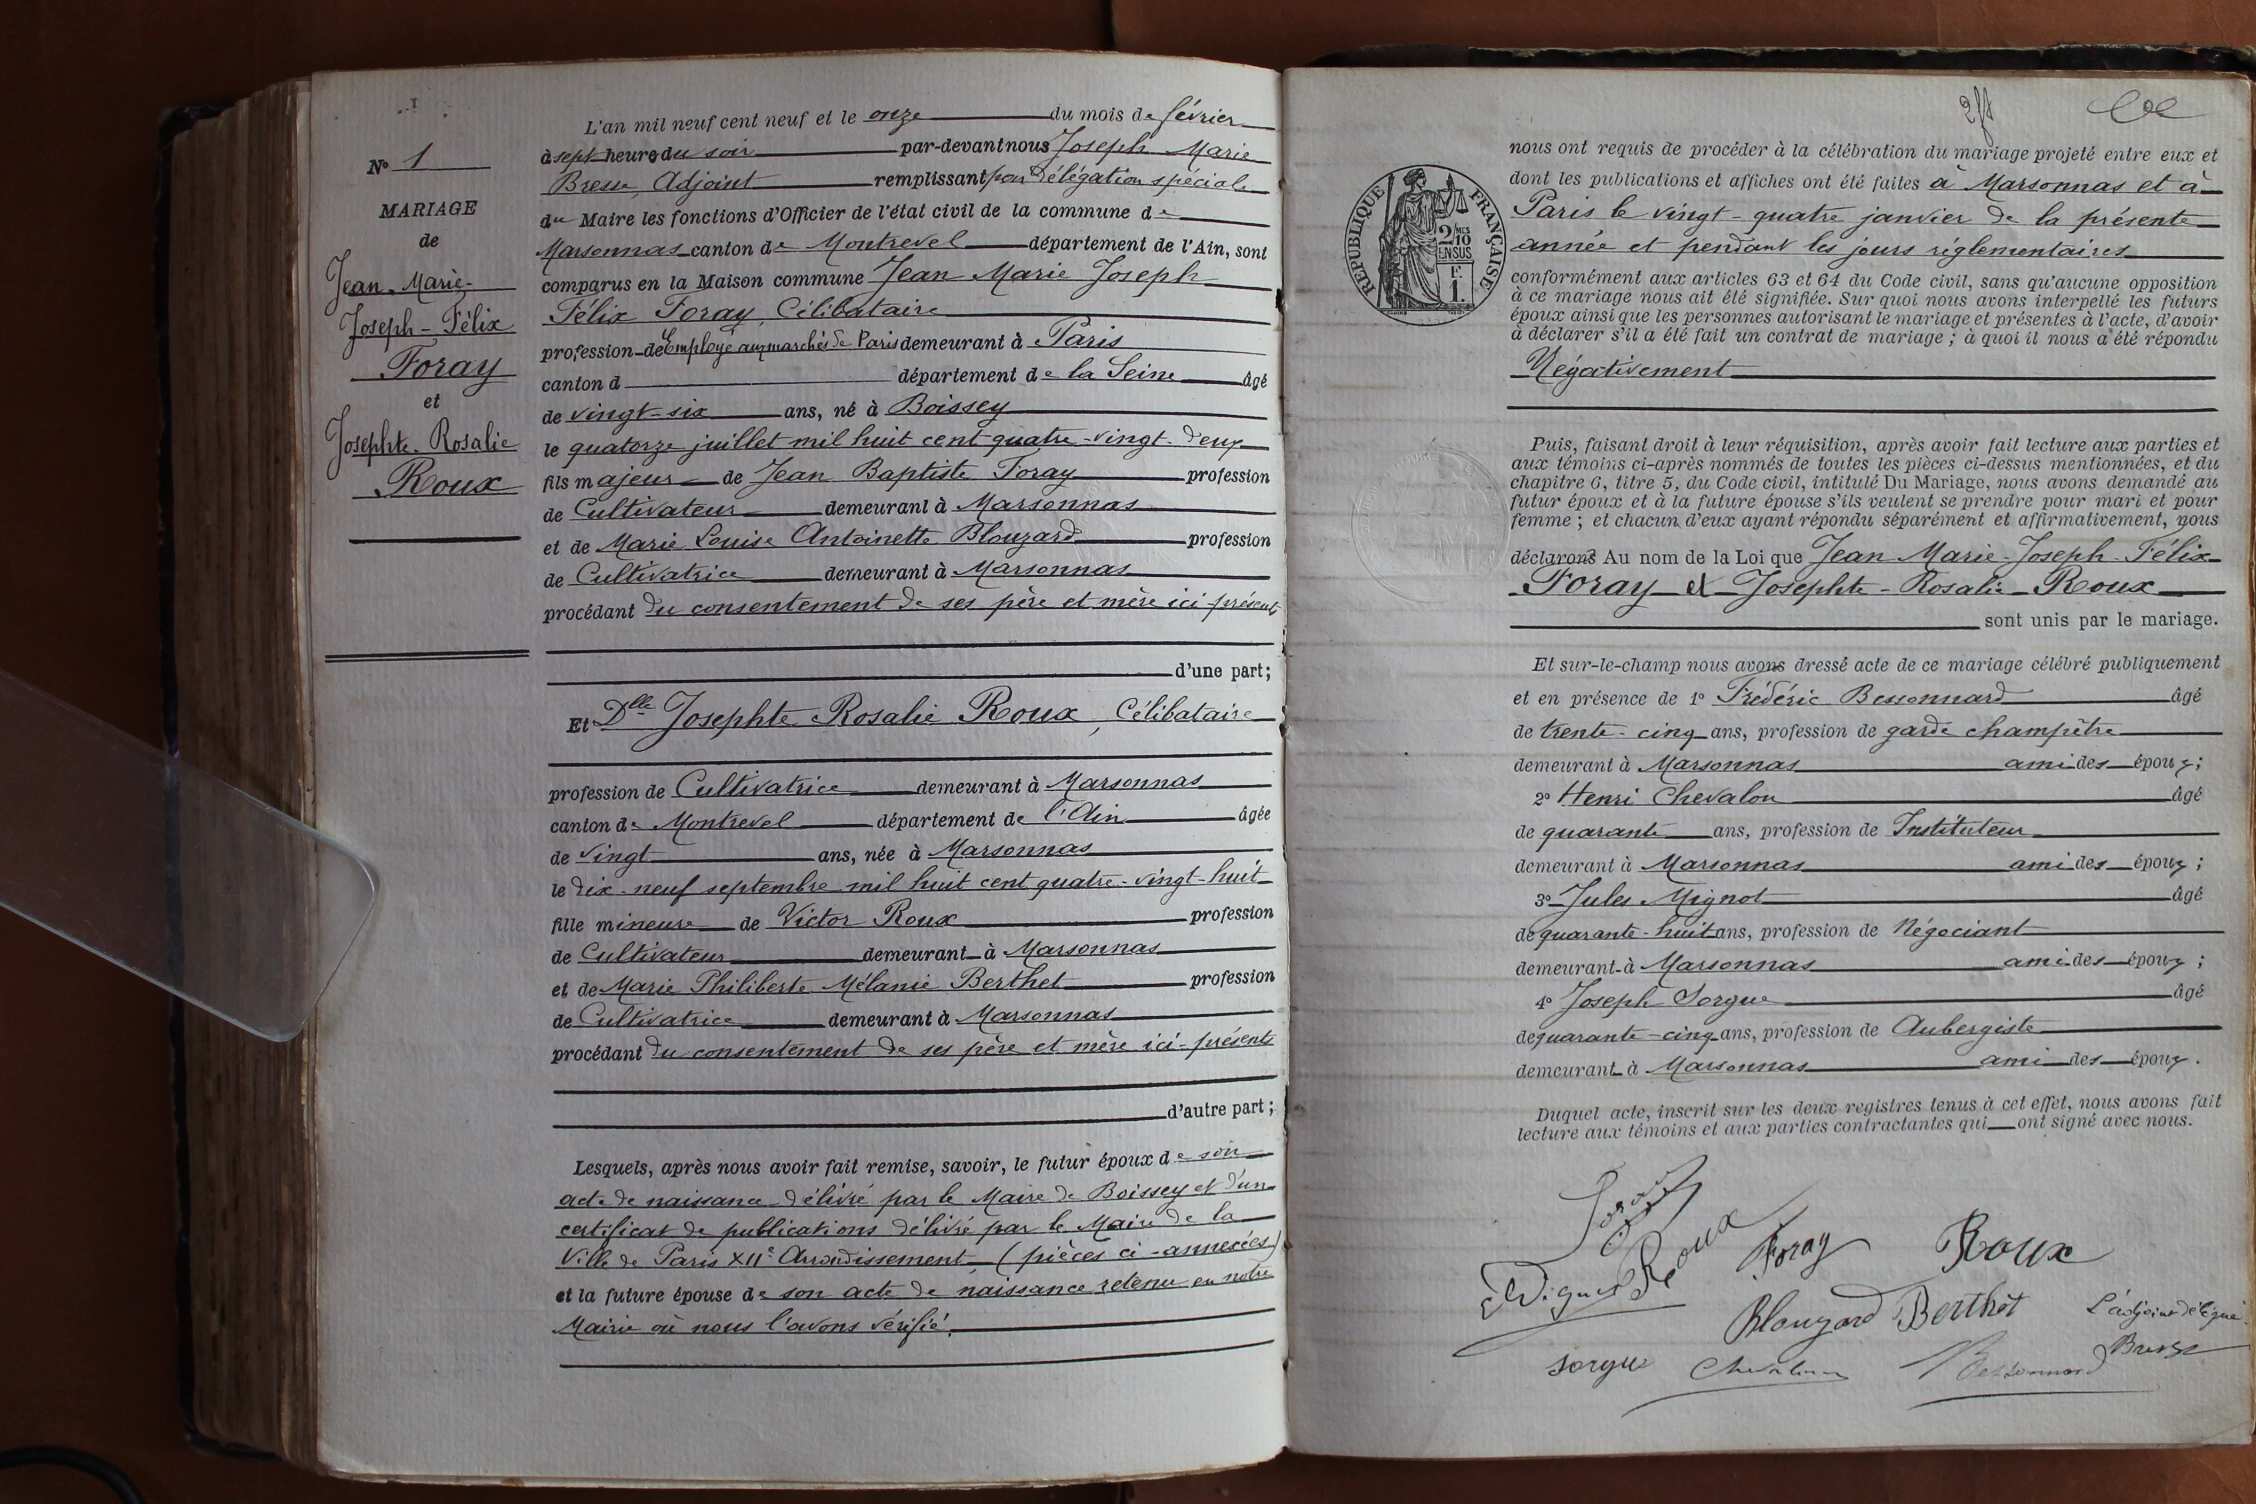 N° 1
MARIAGE
de
Jean-Marie-
Joseph-Félix
Foray
et
Josephte-Rosalie
Roux
L'an mil neuf cent neuf et le onze du mois de février
à sept heures du soir par-devant nous Joseph Marie
Bresse, Adjoint remplissant par délégation spéciale
du Maire les fonctions d'Officier de l'état civil de la commune de
Marsonnas canton de Montrevel département de l'Ain, sont
comparus en la Maison commune Jean Marie Joseph
Félix Foray, Célibataire
profession de Employé aux marchés de Paris demeurant à Paris
canton d département de la Seine âgé
de vingt-six ans, né à Boissey
le quatorze juillet mil huit cent quatre-vingt-deux
fils majeur de Jean Baptiste Foray profession
de Cultivateur demeurant à Marsonnas
et de Marie Louise Antoinette Blouzard profession
de Cultivatrice demeurant à Marsonnas
procédant du consentement de ses père et mère ici présents
d'une part;
Et Dlle Josephte Rosalie Roux, Célibataire
profession de Cultivatrice demeurant à Marsonnas
canton de Montrevel département de l'Ain âgée
de vingt ans, née à Marsonnas
le dix-neuf septembre mil huit cent quatre-vingt-huit
fille mineure de Victor Roux profession
de Cultivateur demeurant à Marsonnas
et de Marie Philiberte Mélanie Berthet profession
de Cultivatrice demeurant à Marsonnas
procédant du consentement de ses père et mère ici-présents
d'autre part;
Lesquels, après nous avoir fait remise, savoir, le futur époux de son
acte de naissance délivré par le Maire de Boissey et d'un
certificat de publications délivré par le Maire de la
Ville de Paris XIIe Arrondissement (pièces ci-annexées)
et la future épouse de son acte de naissance retenu en notre
Mairie où nous l'avons vérifié.
RÉPUBLIQUE FRANÇAISE
2/10 MES
EN SUS
1 F.
nous ont requis de procéder à la célébration du mariage projeté entre eux et
dont les publications et affiches ont été faites à Marsonnas et à
Paris le vingt-quatre janvier de la présente
année et pendant les jours réglementaires
conformément aux articles 63 et 64 du Code civil, sans qu'aucune opposition
à ce mariage nous ait été signifiée. Sur quoi nous avons interpellé les futurs
époux ainsi que les personnes autorisant le mariage et présentes à l'acte, d'avoir
à déclarer s'il a été fait un contrat de mariage; à quoi il nous a été répondu
Négativement
Puis, faisant droit à leur réquisition, après avoir fait lecture aux parties et
aux témoins ci-après nommés de toutes les pièces ci-dessus mentionnées, et du
chapitre 6, titre 5, du Code civil, intitulé Du Mariage, nous avons demandé au
futur époux et à la future épouse s'ils veulent se prendre pour mari et pour
femme; et chacun d'eux ayant répondu séparément et affirmativement, nous
déclarons Au nom de la Loi que Jean Marie-Joseph-Félix
Foray et Josephte-Rosalie Roux
sont unis par le mariage.
Et sur-le-champ nous avons dressé acte de ce mariage célébré publiquement
et en présence de 1° Frédéric Bessonnard âgé
de trente-cinq ans, profession de garde champêtre
demeurant à Marsonnas ami des époux;
2° Henri Chevalon âgé
de quarante ans, profession de Instituteur
demeurant à Marsonnas ami des époux;
3° Jules Mignot âgé
de quarante-huit ans, profession de Négociant
demeurant à Marsonnas ami des époux;
4° Joseph Sorgue âgé
de quarante-cinq ans, profession de Aubergiste
demeurant à Marsonnas ami des époux.
Duquel acte, inscrit sur les deux registres tenus à cet effet, nous avons fait
lecture aux témoins et aux parties contractantes qui ont signé avec nous.
Roux Foray Roux
Blouzard Berthet L'adjoint délégué
Bresse
Sorgue Chevalon Bessonnard